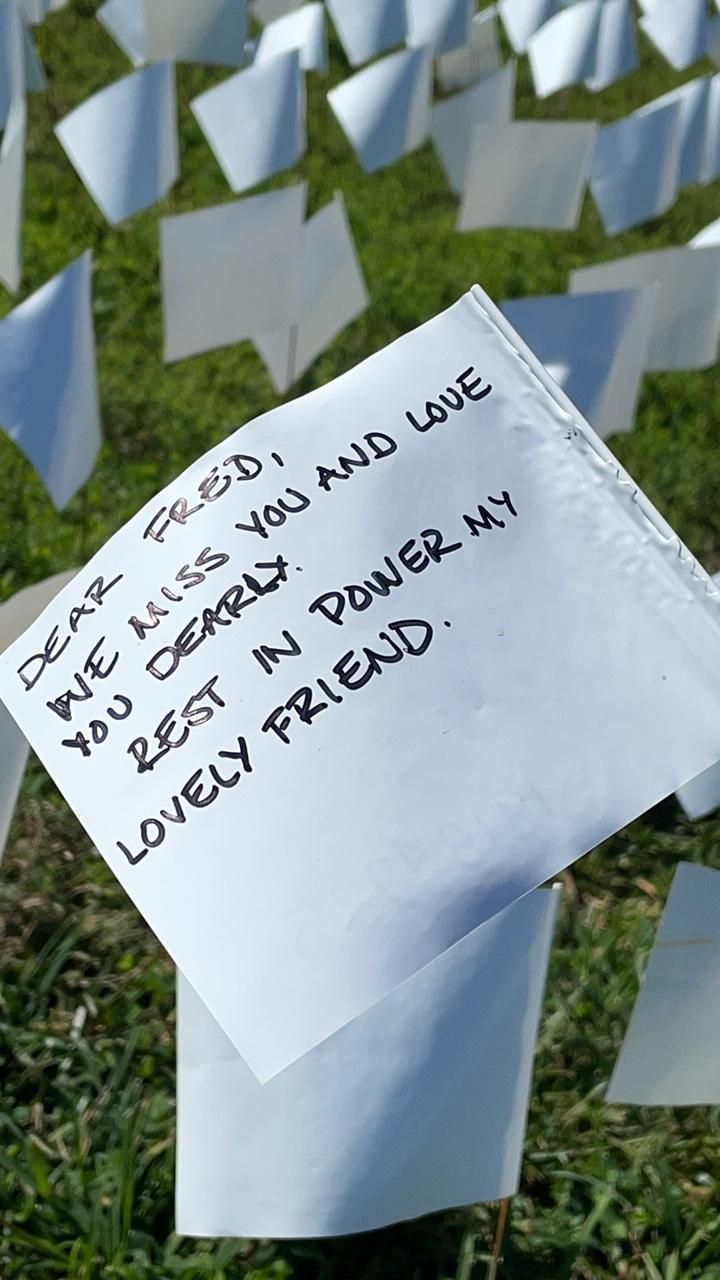 DEAR FRED,
WE MISS YOU AND LOVE
YOU DEARLY.
REST IN POWER MY
LOVELY FRIEND.